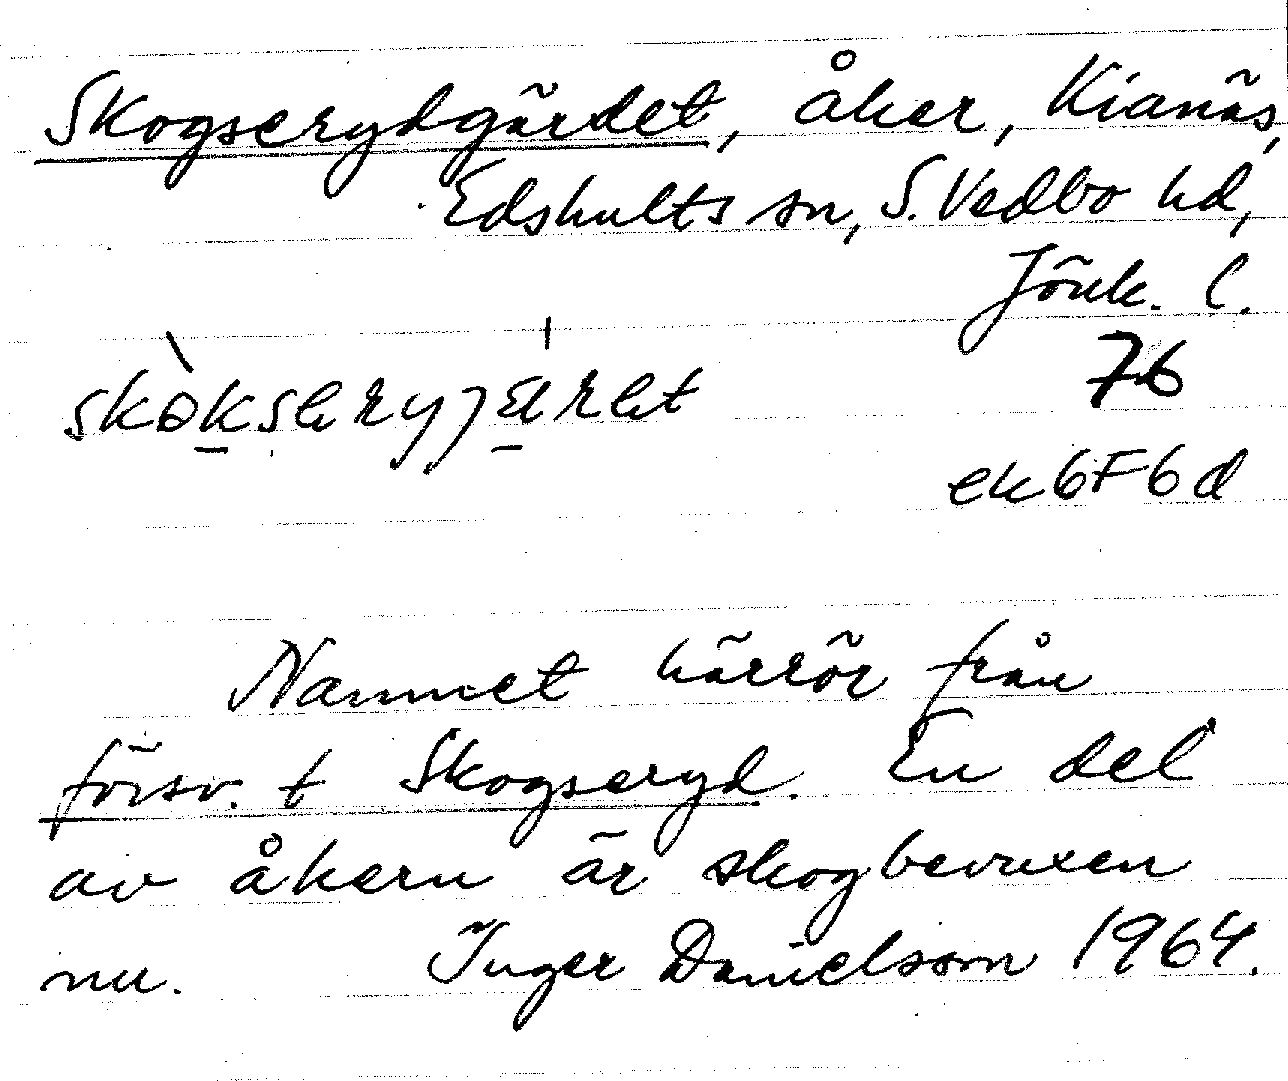 Skogserydgärdet, åker, Kianäs,
Edshults sn, S. Vedbo hd,
Jönk. l.
76
ek 6F6d
Namnet härrör från
försv. t Skogseryd. En del
av åkern är skogbevuxen
nu. Inger Danielsson 1964.